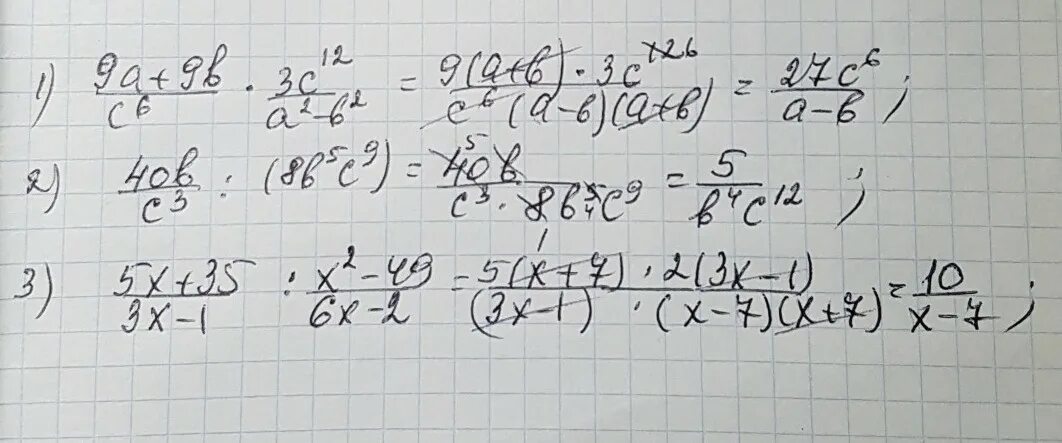 1) (9a+9b)/c⁶ · 3c¹²/(a²-b²) = 9(a+b)·3c¹²⁶/(c⁶(a-b)(a+b)) = 27c⁶/(a-b);
2) 40b/c³ : (8b⁵c⁹) = ⁵40b/(c³·8b⁵₄c⁹) = 5/(b⁴c¹²);
3) (5x+35)/(3x-1) : (x²-49)/(6x-2) = 5(x+7)·2(3x-1)¹/((3x-1)·(x-7)(x+7)) = 10/(x-7);